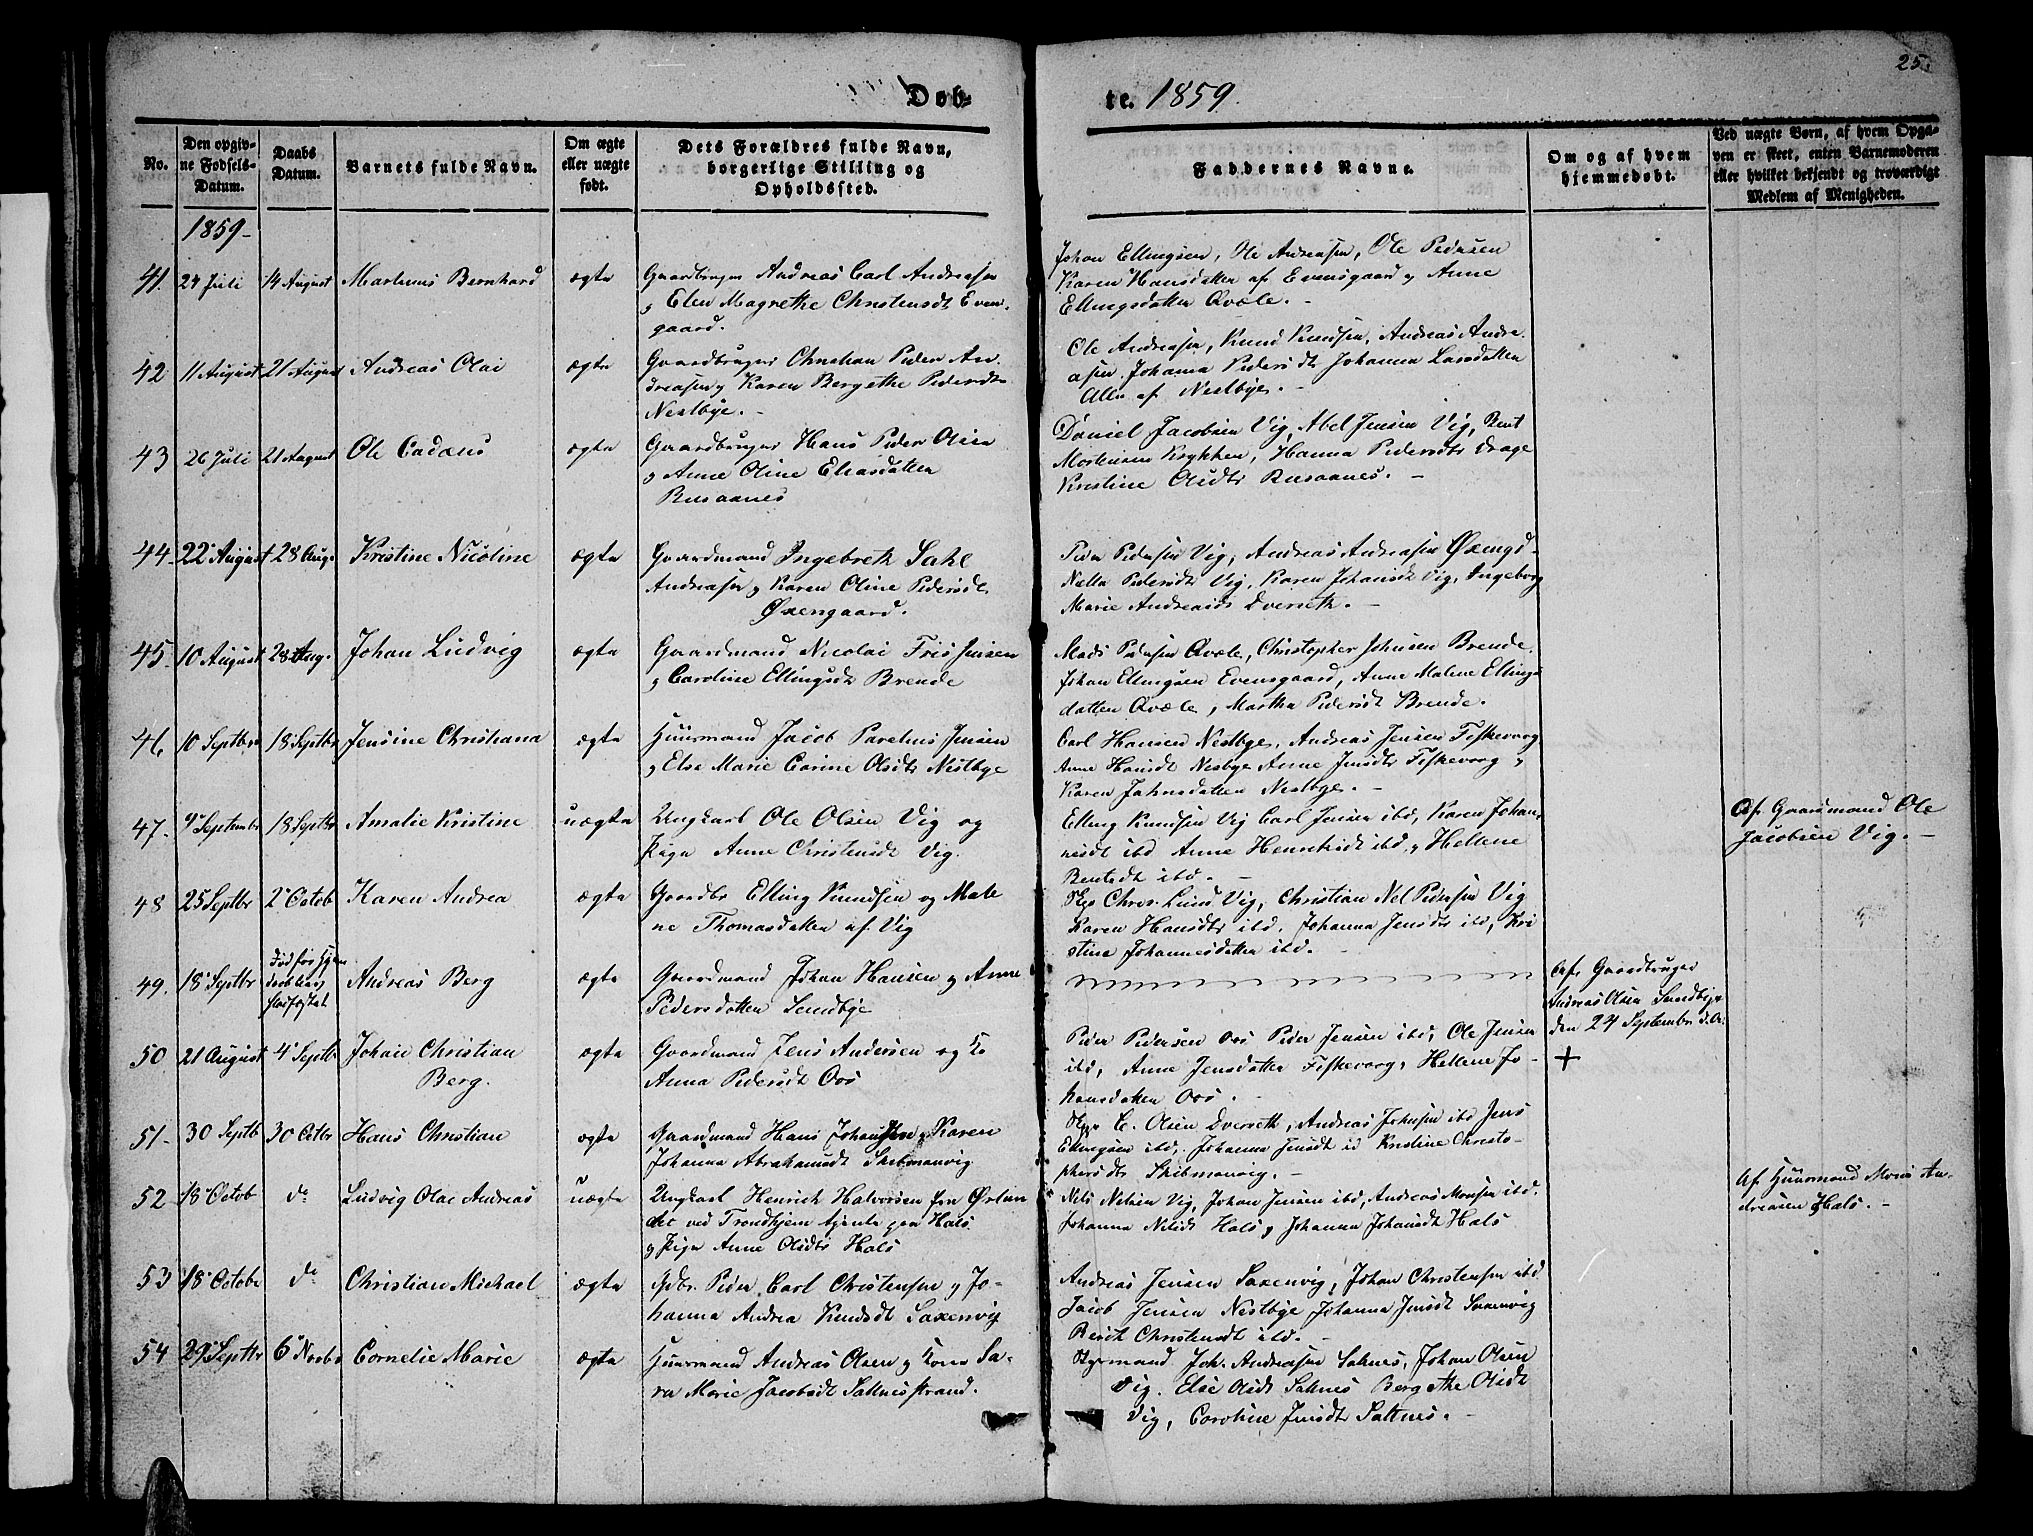 25.
Døb-
te. 1859.
No.
Den opgiv-
ne Fødsels-
Datum.
Daabs
Datum.
Barnets fulde Navn.
Om ægte
eller uægte
født.
Dets Forældres fulde Navn,
borgerlige Stilling og
Opholdssted.
Faddernes Navne.
Om og af hvem
hjemmedøbt.
Ved uægte Børn, af hvem Opga-
ven er skeet, enten Barnemoderen
eller hvilket bekjendt og troværdigt
Medlem af Menigheden.
1859-
41. 24 Juli 14 August Martinus Bernhard ægte
Gaardbruger Andreas Carl Andreasen
og Elen Magrethe Christensdt Even-
gaard.
Johan Ellingsen, Ole Andreasen, Ole Pedersen
Karen Hansdatter af Evensgaard og Anne
Ellingsdatter Qvæle. -
42 11 August 21 August Andreas Olai ægte
Gaardbruger Christian Peder An-
dreasen og Karen Bergethe Pedersdtr
Nestbye. -
Ole Andreasen, Knud Knudsen, Andreas Andre-
asen, Johanna Pedersdt Johanna Larsdatter
Alle af Nestbye. -
43 26 Juli 21 August Ole ægte
Gaardbruger Hans Peder Olsen
og Anne Oline Eliasdatter
Rusaanes
Daniel Jacobsen Vig, Abel Jensen Vig, Bent
Mortensen Krykken, Hanna Pedersdtr Drage
Kristine Olsdtr Rusaanes. -
44- 22 August 28 Aug. Kristine Nicoline ægte
Gaardmand Ingebreth Sahl
Andreasen og Karen Oline Pedersdt
Øxengaard.
Peder Pedersen Vig, Andreas Andreasen Øxengd-
Pedersdt Vig, Karen Johansdt Vig, Ingeborg
Marie Andreasdt Dverseth. -
45. 10 August 28 Aug. Johan Ludvig ægte
Gaardmand Nicolai Friis Jensen
og Caroline Ellingsdt Brende
Mads Pedersen Qvæle, Christopher Johnsen Brende,
Johan Ellingsen Evensgaard, Anne Malene Ellings
datter Qvæle, Martha Pedersdt Brende.
46. 10 Septbr 18 Septbr Jensine Christiana ægte
Huusmand Jacob Parelius Jensen
og Else Marie Carine Olsdtr Nestbye
Carl Hansen Nestbye, Andreas Jensen Fiskevaag
Anne Hansdt Nesbye Anne Jensdtr Fiskevaag og
Karen Jahnsdatter Nestbye. -
47. 9 Septembr 18 Septbr Amalie Kristine uægte
Ungkarl Ole Olsen Vig og
Pige Anne Christensdt Vig.
Elling Knudsen Vig Carl Jensen ibd, Karen Johan-
nesdt ibd Anne Henriksdt ibd, og Hellene
Bentsdt ibd. -
Af Gaardmand Ole
Jacobsen Vig. -
48 25 Septbr 2 Octob Karen Andrea ægte
Gaardbr Elling Knudsen og Male
ne Thomasdatter af Vig
Chr. Lund Vig, Christian Nel Pedersen Vig
Karen Hansdtr ibd, Johanna Jensdtr ibd, Kri
stine Johannesdatter ibd. -
49. 18 Septbr Død før Hjem
daab blev
stadfæstet Andreas Berg ægte
Gaardmand Johan Hansen og Anne
Pedersdatter Sundbye
Af Gaardbruger
Andreas Olsen Sundbye
den 24 Septembr d.A.
50. 21 August 4 Septbr Johan Christian
Berg. ægte
Gaardmand Jens Andersen og Ko
Anna Pedersdt Oos
Peder Pedersen Oos Peder Jensen ibd, Ole Jensen
ibd, Anne Jensdatter Fiskevaag, Hellene Jo-
hansdatter Oos. -
+
51- 30 Septb 30 Octbr Hans Christian ægte
Gaardmand Hans Johansen og Karen
Johanna Abrahamsdt Skibmanvig
Olsen Dverseth, Andreas Johnsen ibd Jens
Ellingsen ibd, Johanna Jensdt id Kristine Christo-
phersdtr Skibmanvig. -
52 18 Octob do Ludvig Olai Andreas uægte
Ungkarl Henrich Halvorsen fra Ørlan
det ved Trondhjem tjente paa Hals
og Pige Anne Olsdtr Hals
Nels Nelsen Vig, Johan Jensen ibd, Andreas Monsen ibd.
Johanna Nelsdt Hals og Johanna Johansdt Hals
Af Huusmand Mons An-
dreasen Hals. -
53 18 Octobr do Christian Michael ægte
Gdbr. Peder Carl Christensen og Jo-
hanna Andrea Knudsdt Saxenvig
Andreas Jensen Saxenvig, Johan Christensen ibd
Jacob Jensen Nestbye Johanna Jensdt Saxenvig
Berit Christensdt ibd. -
54 29 Septbr 6 Novbr Cornelie Marie ægte
Huusmand Andreas Olsen og Kone Sa-
ra Marie Jacobsdt Saltnesstrand.
Styrmand Joh. Andreasen Saltnes, Johan Olsen
Vig. Else Olsdt Saltnes Bergethe Olsdt
Vig, Caroline Jensdtr Saltnes. -